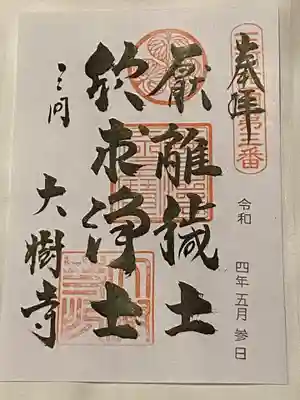 奉拝
第三番
令和 四年五月参日
厭離穢土
欣求浄土
三河
大樹寺